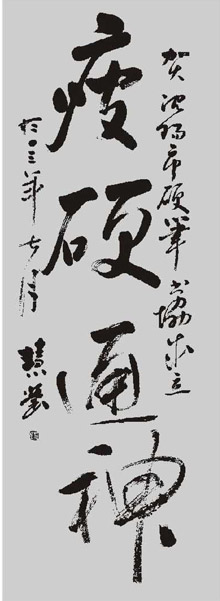 贺沈阳市硬笔书协成立
瘦硬通神
於一三年七月